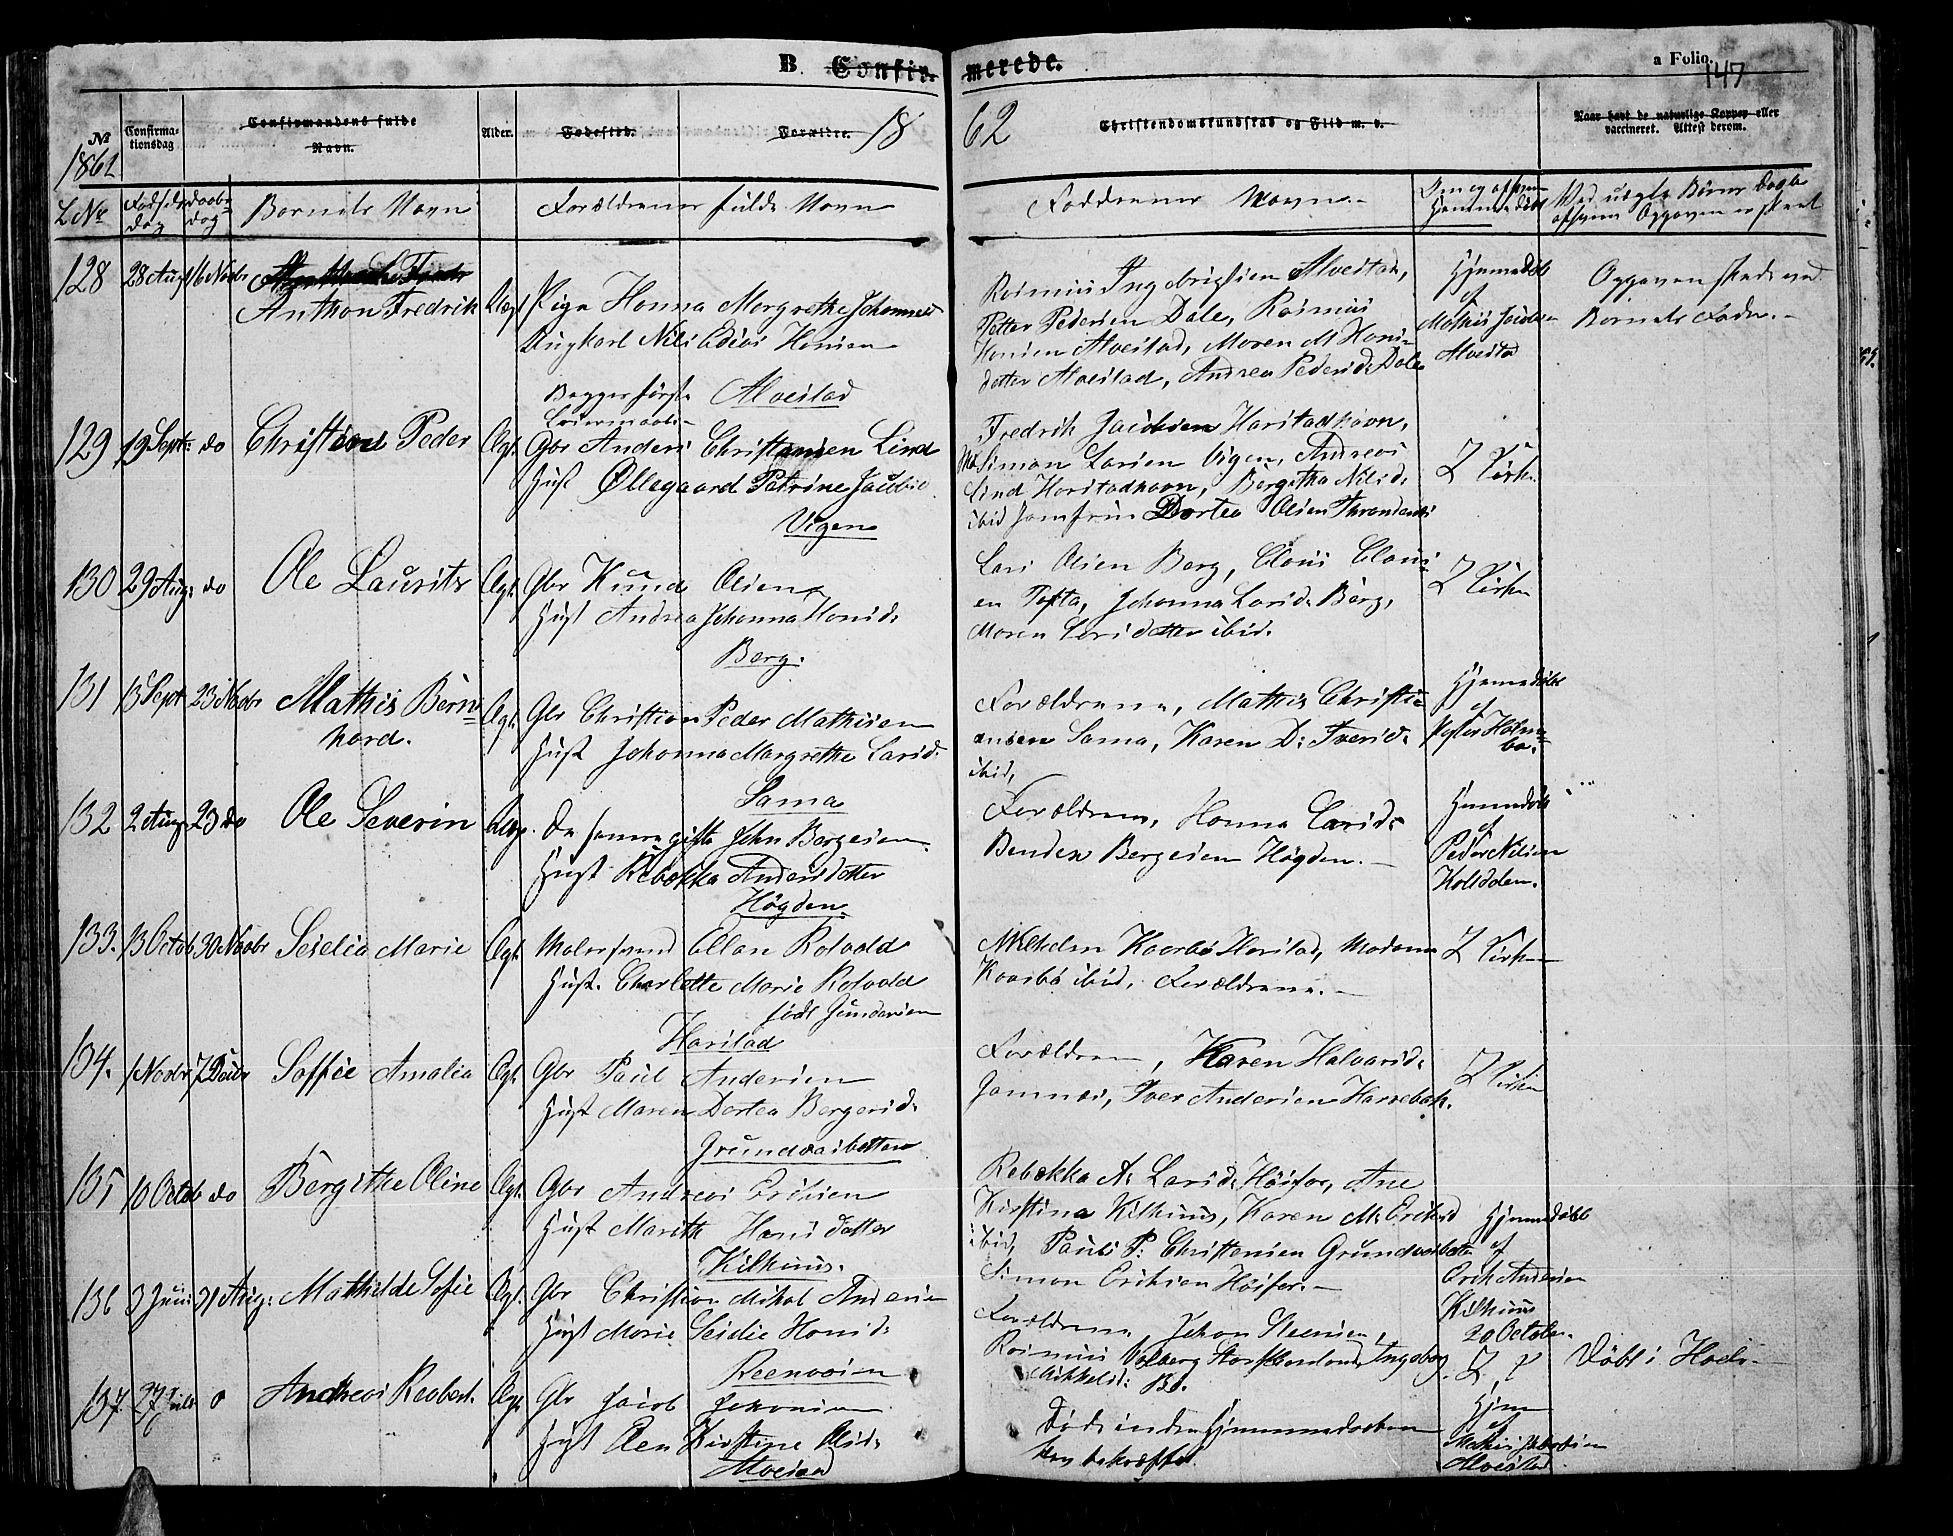 B. Confir- merede. a Folio. 147
№ Confirma-tionsdag Confirmandens fulde Navn. Alder. Fødested. Forældre. 18 62 Christendomskundskab og Flid m. v. Naar havt de naturlige Kopper eller vaccineret. Attest derom.
1862
L No Fødsels dag Daabs dag Barnets Navn Forældrenes fulde Navn Faddrenes Navn.
128 28 Aug 16 Novbr
Anthon Fredrik Uægt Pige Hanna Margrethe Johannesd
Ungkarl Nils Edias Hansen
Begges første Leiermaal
Alvestad
Rasmus Ingebrigtsen Alvestad,
Petter Pedersen Dale, Rasmus
Hansen Alvestad, Maren M Hans-
datter Alvestad, Andrea Pedersd: Dale
Hjemmedøbt
af
Mathis
Alvestad
Opgaven skede ved
Barnets Fader.
129 19 Septr: do Christian Peder Ægt. Gbr Anders Christensen Lind
Hust Øllegaard Petrine Jacobsd.
Vigen
Fredrik Jacobsen Harstadhavn,
Simon Larsen Vigen, Andreas
Lind Harstadhavn, Bergitha Nilsd.
ibid Jomfru Dortea Olsen Throndenæs
I Kirken
130 29 Aug: do Ole Laurits Ægt. Gbr Knud Olsen
Hust Andrea Johanna Hansd:
Berg.
Lars Olsen Berg, Claus Claus-
en Tofta, Johanna Larsd: Berg,
Maren Larsdatter ibid.
I Kirken
131 13 Sept 23 Novbr Mathis Bern-
hard. Ægt. Gbr Christian Peder Mathisen
Hust Johanna Margrethe Larsd:
Sama
Forældrene, Mathis Christi-
ansen Sama, Karen D: Iversd:
ibid,
Hjemmedøbt
af
132 2 Aug: 23 do Ole Severin Ægt. De samme gifte John Bergesen
Hust Rebekka Andersdatter
Høgden.
Forældrene, Hanna Larsd:
Bendix Bergesen Høgden.
Hjemmedøbt
af
Peder Nilsen
133. 13 Octob 30 Novbr Seselia Marie Ægt. Malersvend Ellan Rolvold
Hust. Charlotte Marie Rolvold
født Gundersen
Harstad
Kaarbø Harstad, Madame
Kaarbø ibid, Forældrene.
I Kirken
134. 1 Novbr 7 Decbr Soffie Amalia Ægt. Gbr Paul Andersen
Hust Maren Dortea Bergersd:
Grundvasbotten
Forældrene, Karen Halvarsd:
Iver Andersen
I Kirken
135 10 Octob do Bergithe Oline Ægt. Gbr Andreas Eriksen
Hust Marith Hansdatter
Kilhuus.
Rebekka A: Larsd: Høifor, Ane
Kirstina Kilhuus, Karen M: Eriksd
ibid, Pauls P: Christensen
Simon Eriksen Høifor.
Hjemmedøbt
af
Erik Andersen
Kilhuus
20 October.
136 3 Juni 31 Aug: Mathilde Sofie Ægt. Gbr Christian Mikal Andersen
Hust Marie Seselie Hansd:
Forældrene, Johan Steensen,
Rasmus Volberg Ingeborg
Mikkelsd: Bø.
Døbt i
137. 27 Andreas Reobert. Ægt Gbr Jacob
Hust Kirstine Olsd:
Alvestad
Døde inden Hjemmedaaben
Hjem
af
Mathis Jacobsen
Alvestad